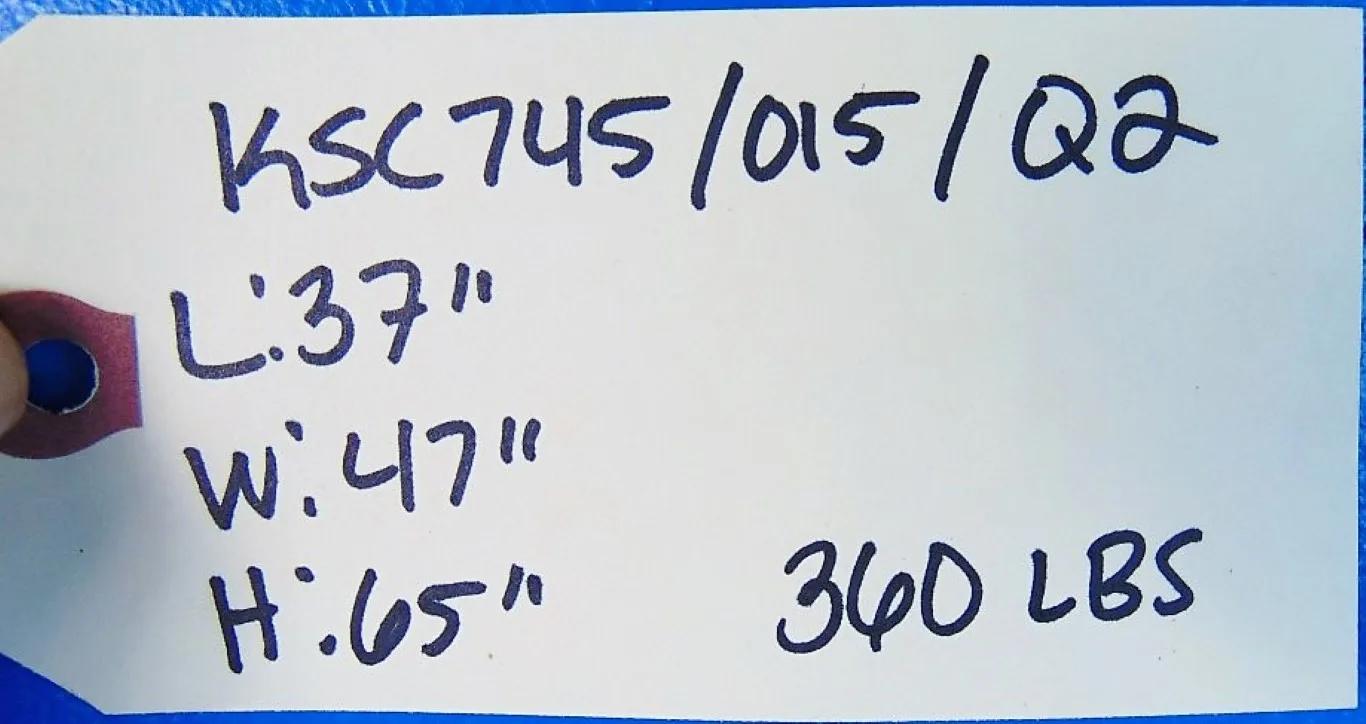 KSC745/015/Q2
L:37"
W:47"
H:65"
360 LBS